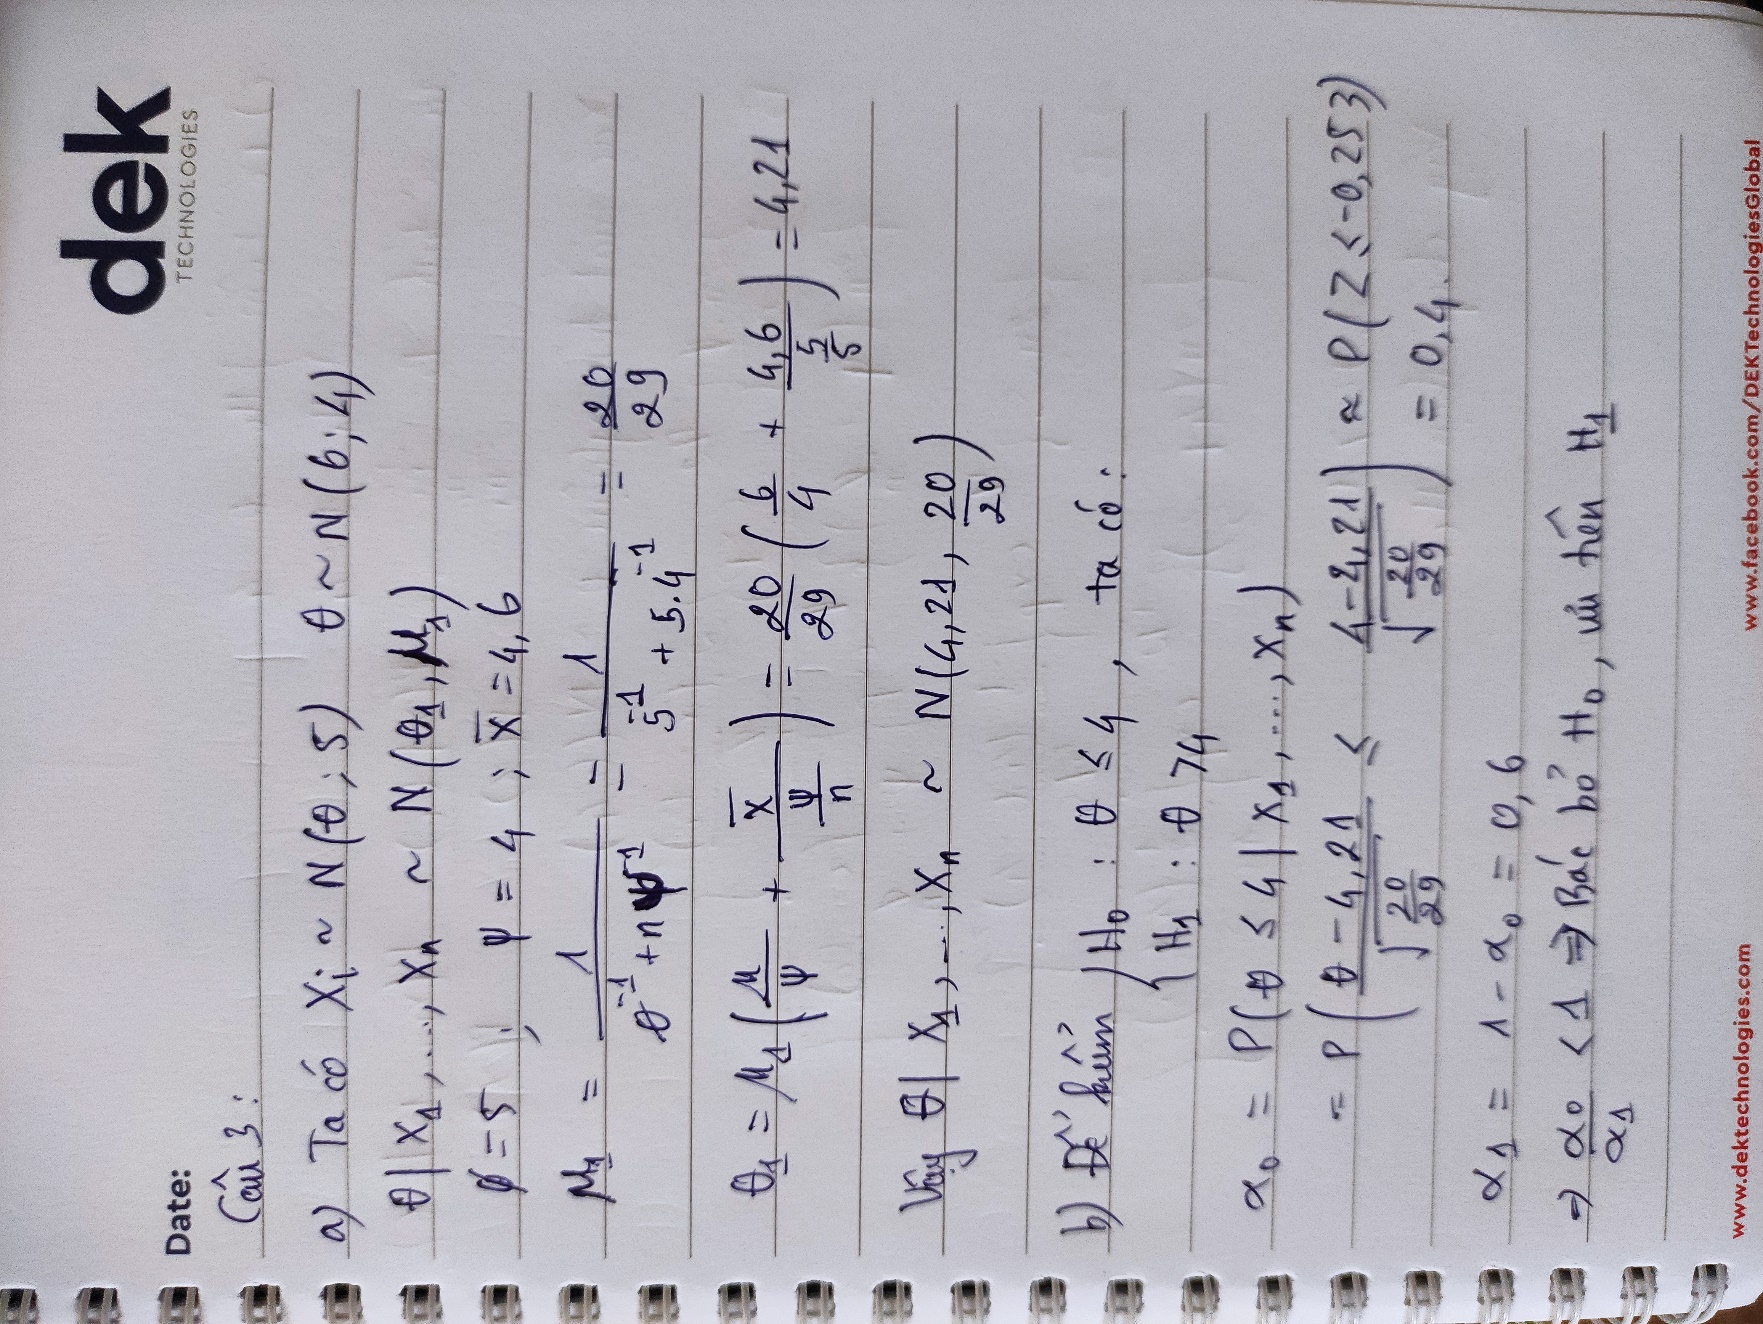 dek
TECHNOLOGIES
Date:
Câu 3:
a) Ta có Xi ~ N(θ; 5) θ ~ N(6; 4)
θ | X1, ..., Xn ~ N(θ1, μ1)
φ = 5 ; ψ = 4 ; X̄ = 4,6
μ1 = 1 / (θ^-1 + nψ^-1) = 1 / (5^-1 + 5.4^-1) = 20/29
θ1 = μ1 (μ/ψ + X̄/(ψ/n)) = 20/29 (6/4 + 4,6/(5/5)) = 4,21
Vậy θ | X1, ..., Xn ~ N(4,21, 20/29)
b) Để kiểm { H0 : θ ≤ 4 , ta có:
H1 : θ > 4
α0 = P(θ ≤ 4 | X1, ..., Xn)
= P( (θ - 4,21)/√(20/29) ≤ (4 - 4,21)/√(20/29) ) ≈ P(Z ≤ -0,253)
= 0,4
α1 = 1 - α0 = 0,6
⇒ α0/α1 < 1 ⇒ Bác bỏ H0, ưu tiên H1
www.dektechnologies.com www.facebook.com/DEKTechnologiesGlobal